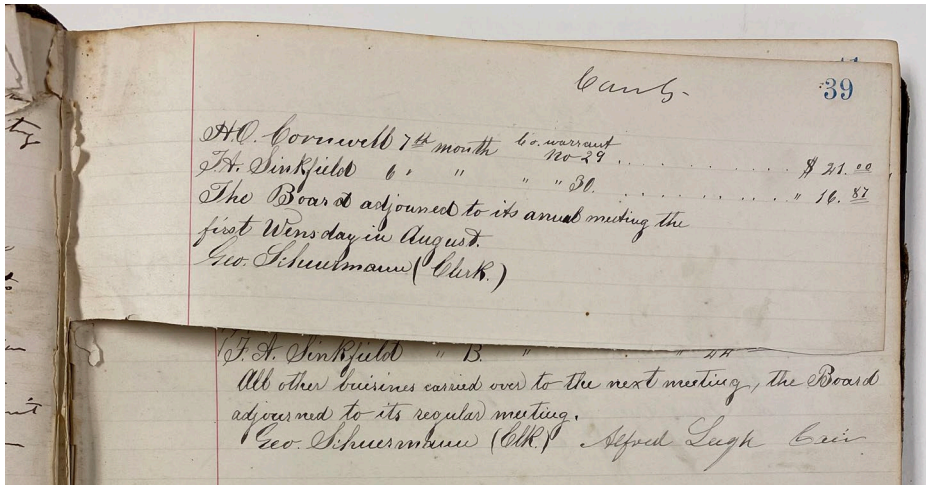 Cont-
39
H.O. Cornwell 7th month Co. warrant no 29 . . . . . . . $ 21.00
F.A. Sinkfield 6 " " " " 30. . . . . . . . . . . " 16.87
The Board adjouned to its anual meeting the
first Wensday in August.
Geo. Schuermann (Clerk.)
F. A. Sinkfield " B. " "
All other buisines carried over to the next meeting, the Board
adjourned to its regular meeting.
Geo. Schuermann (Clk.) Alfred Leigh